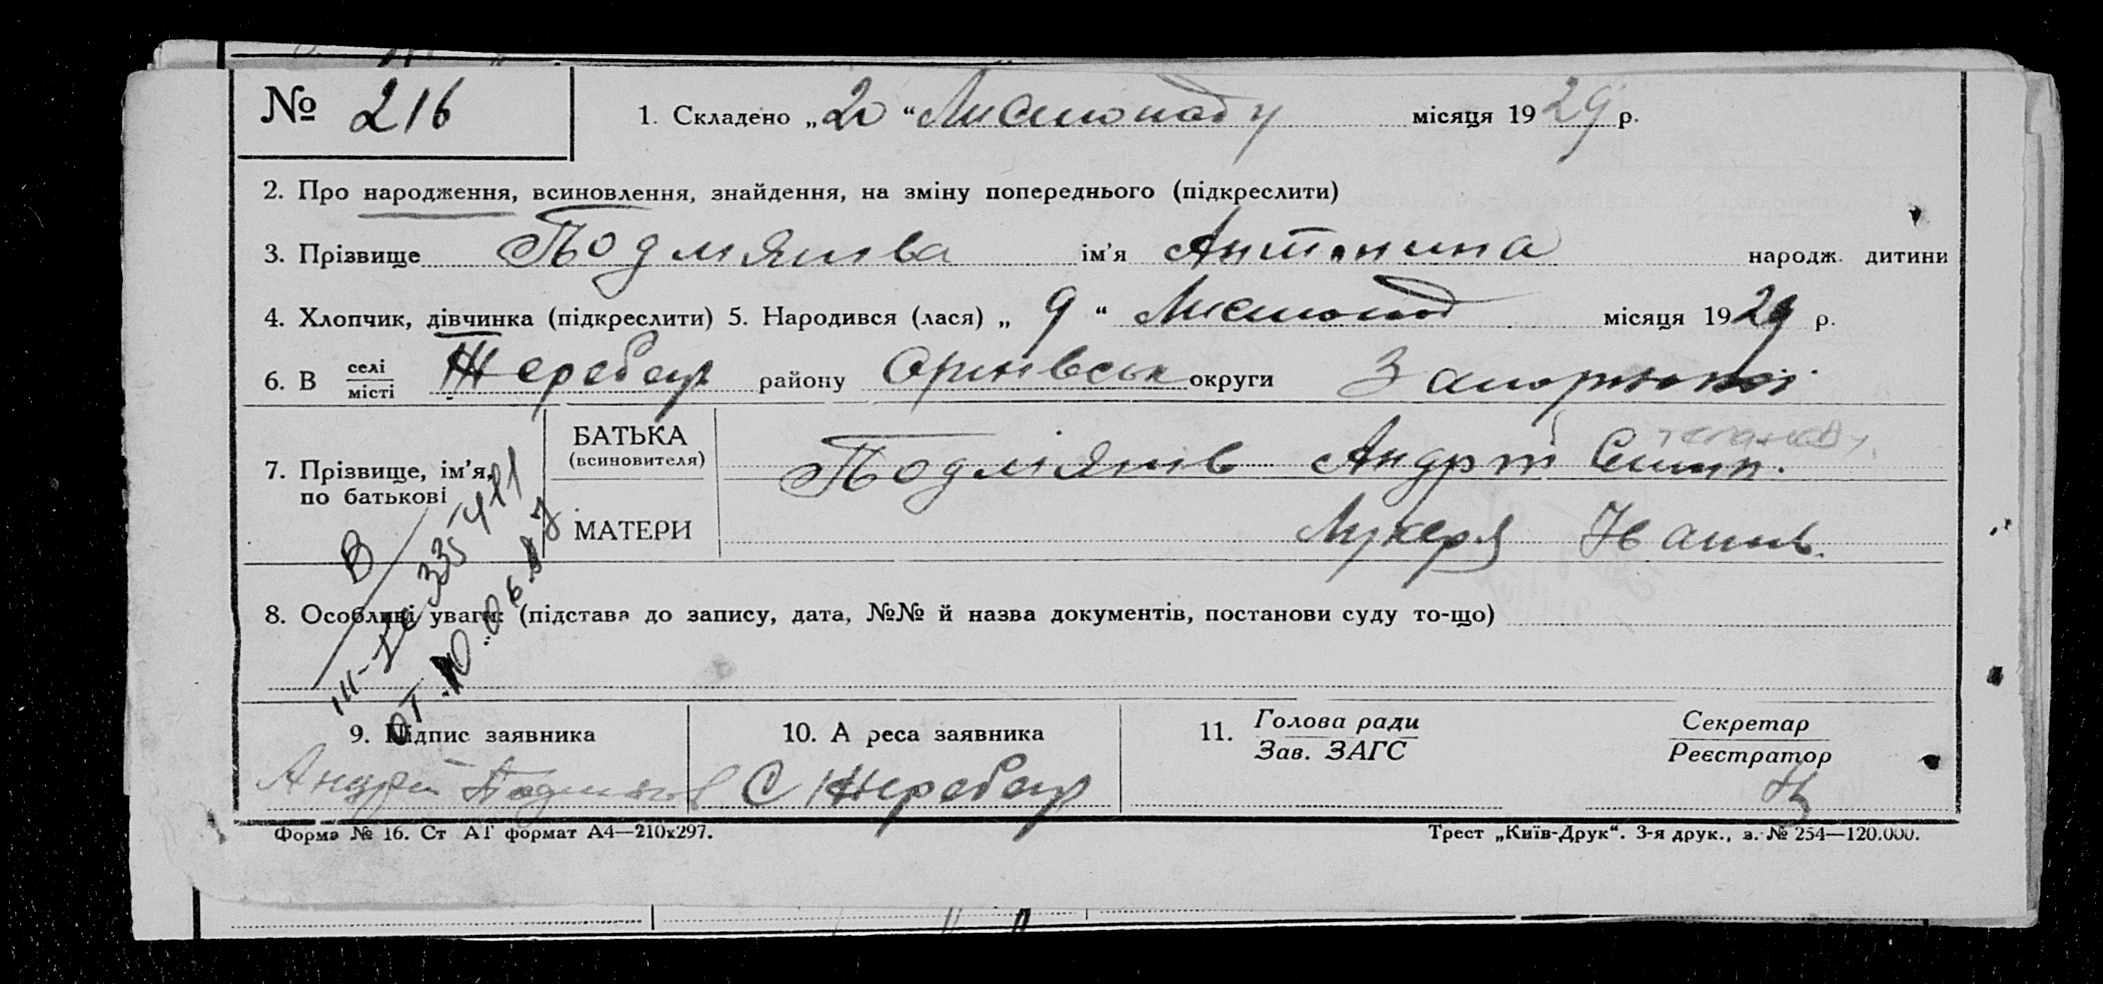 № 216 1. Складено „20“ Листопаду місяця 1929 р.
2. Про народження, всиновлення, знайдення, на зміну попереднього (підкреслити)
3. Прізвище Подмянва ім'я Антонина народж. дитини
4. Хлопчик, дівчинка (підкреслити) 5. Народився (лася) „9“ Листопад місяця 1929 р.
6. В селі місті Жеребец району Оріхівськ округи Запоріжжі
7. Прізвище, ім'я, по батькові
БАТЬКА (всиновителя) Андрій Степ.
МАТЕРИ Лукеря Іванів.
В
335421
от 10.06.87
8. Особливі уваги: (підстава до запису, дата, №№ й назва документів, постанови суду то-що)
9. Підпис заявника 10. А реса заявника 11. Голова ради Зав. ЗАГС Секретар Реєстратор
Андрій С Жеребец
Форма № 16. Ст АГ формат А4—210х297. Трест „Київ-Друк“. 3-я друк., з. № 254—120.000.